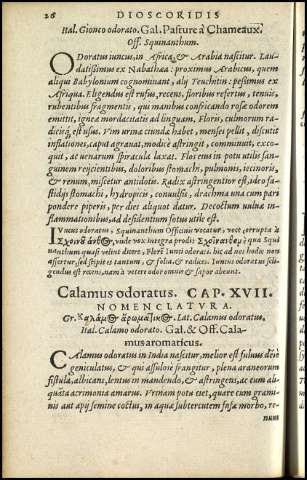 26 DIOSCORIDIS
Ital. Gionco odorato. Gal. Pasture à Chameaux.
Off. Squinanthum.
ODoratus iuncus, in Africa, & Arabia nascitur. Lau-
datissimus ex Nabathæa: proximus Arabicus, quem
aliqui Babylonium cognominant, alij Teuchitin: pessimus ex
Affrica. Eligendus est rufus, recens, floribus refertus, tenuis,
rubentibus fragmentis, qui manibus confricando rosæ odorem
emittit, ignea mordacitate ad linguam. Floris, culmorum ra-
dicisq; est usus. Vim urinæ ciendæ habet, menses pellit, discutit
inflationes, caput agrauat, modicè astringit, comminuit, exco-
quit, ac uenarum spiracula laxat. Flos eius in potu utilis san-
guinem reijcientibus, doloribus stomachi, pulmonis, iecinoris,
& renum, miscetur antidotis. Radix astringentior est, ideo fa-
stidijs stomachi, hydropicis, conuulsis, drachma una cum pari
pondere piperis, per dies aliquot datur. Decoctum uuluæ in-
flammationibus, ad desidentum fotus utile est.
IVncus odoratus, Squinanthum Officinis vocatur, voce corrupta à
Σχοίνου ἄνθος, vnde vox integra prodit Σχοίνανθος, à qua Squi
nanthum quasi velint dicere, Flore Iunci odorati. hic ad nos hodie non
affertur, sed stipites tantum, & folia, & radices. Iuncus odoratus seli-
gendus est recens, nam is vetere odore omnis & sapor abeunt.
Calamus odoratus. CAP. XVII.
NOMENCLATVRA.
Gr. Καλάμος ἀρωματικός. Lat. Calamus odoratus.
Ital. Calamo odorato. Gal. & Off. Cala-
mus aromaticus.
CAlamus odoratus in India nascitur, melior est fuluus, densis
geniculatus, & qui assulose frangitur, plena araneorum
fistula, albicans, lentus in mandendo, & astringens, ac cum ali-
quata acrimonia amarus. Vrinam potu ciet, quare cum grami-
nis aut apij semine coctus, in aquæ subtercutem fusæ morbo, re-
num